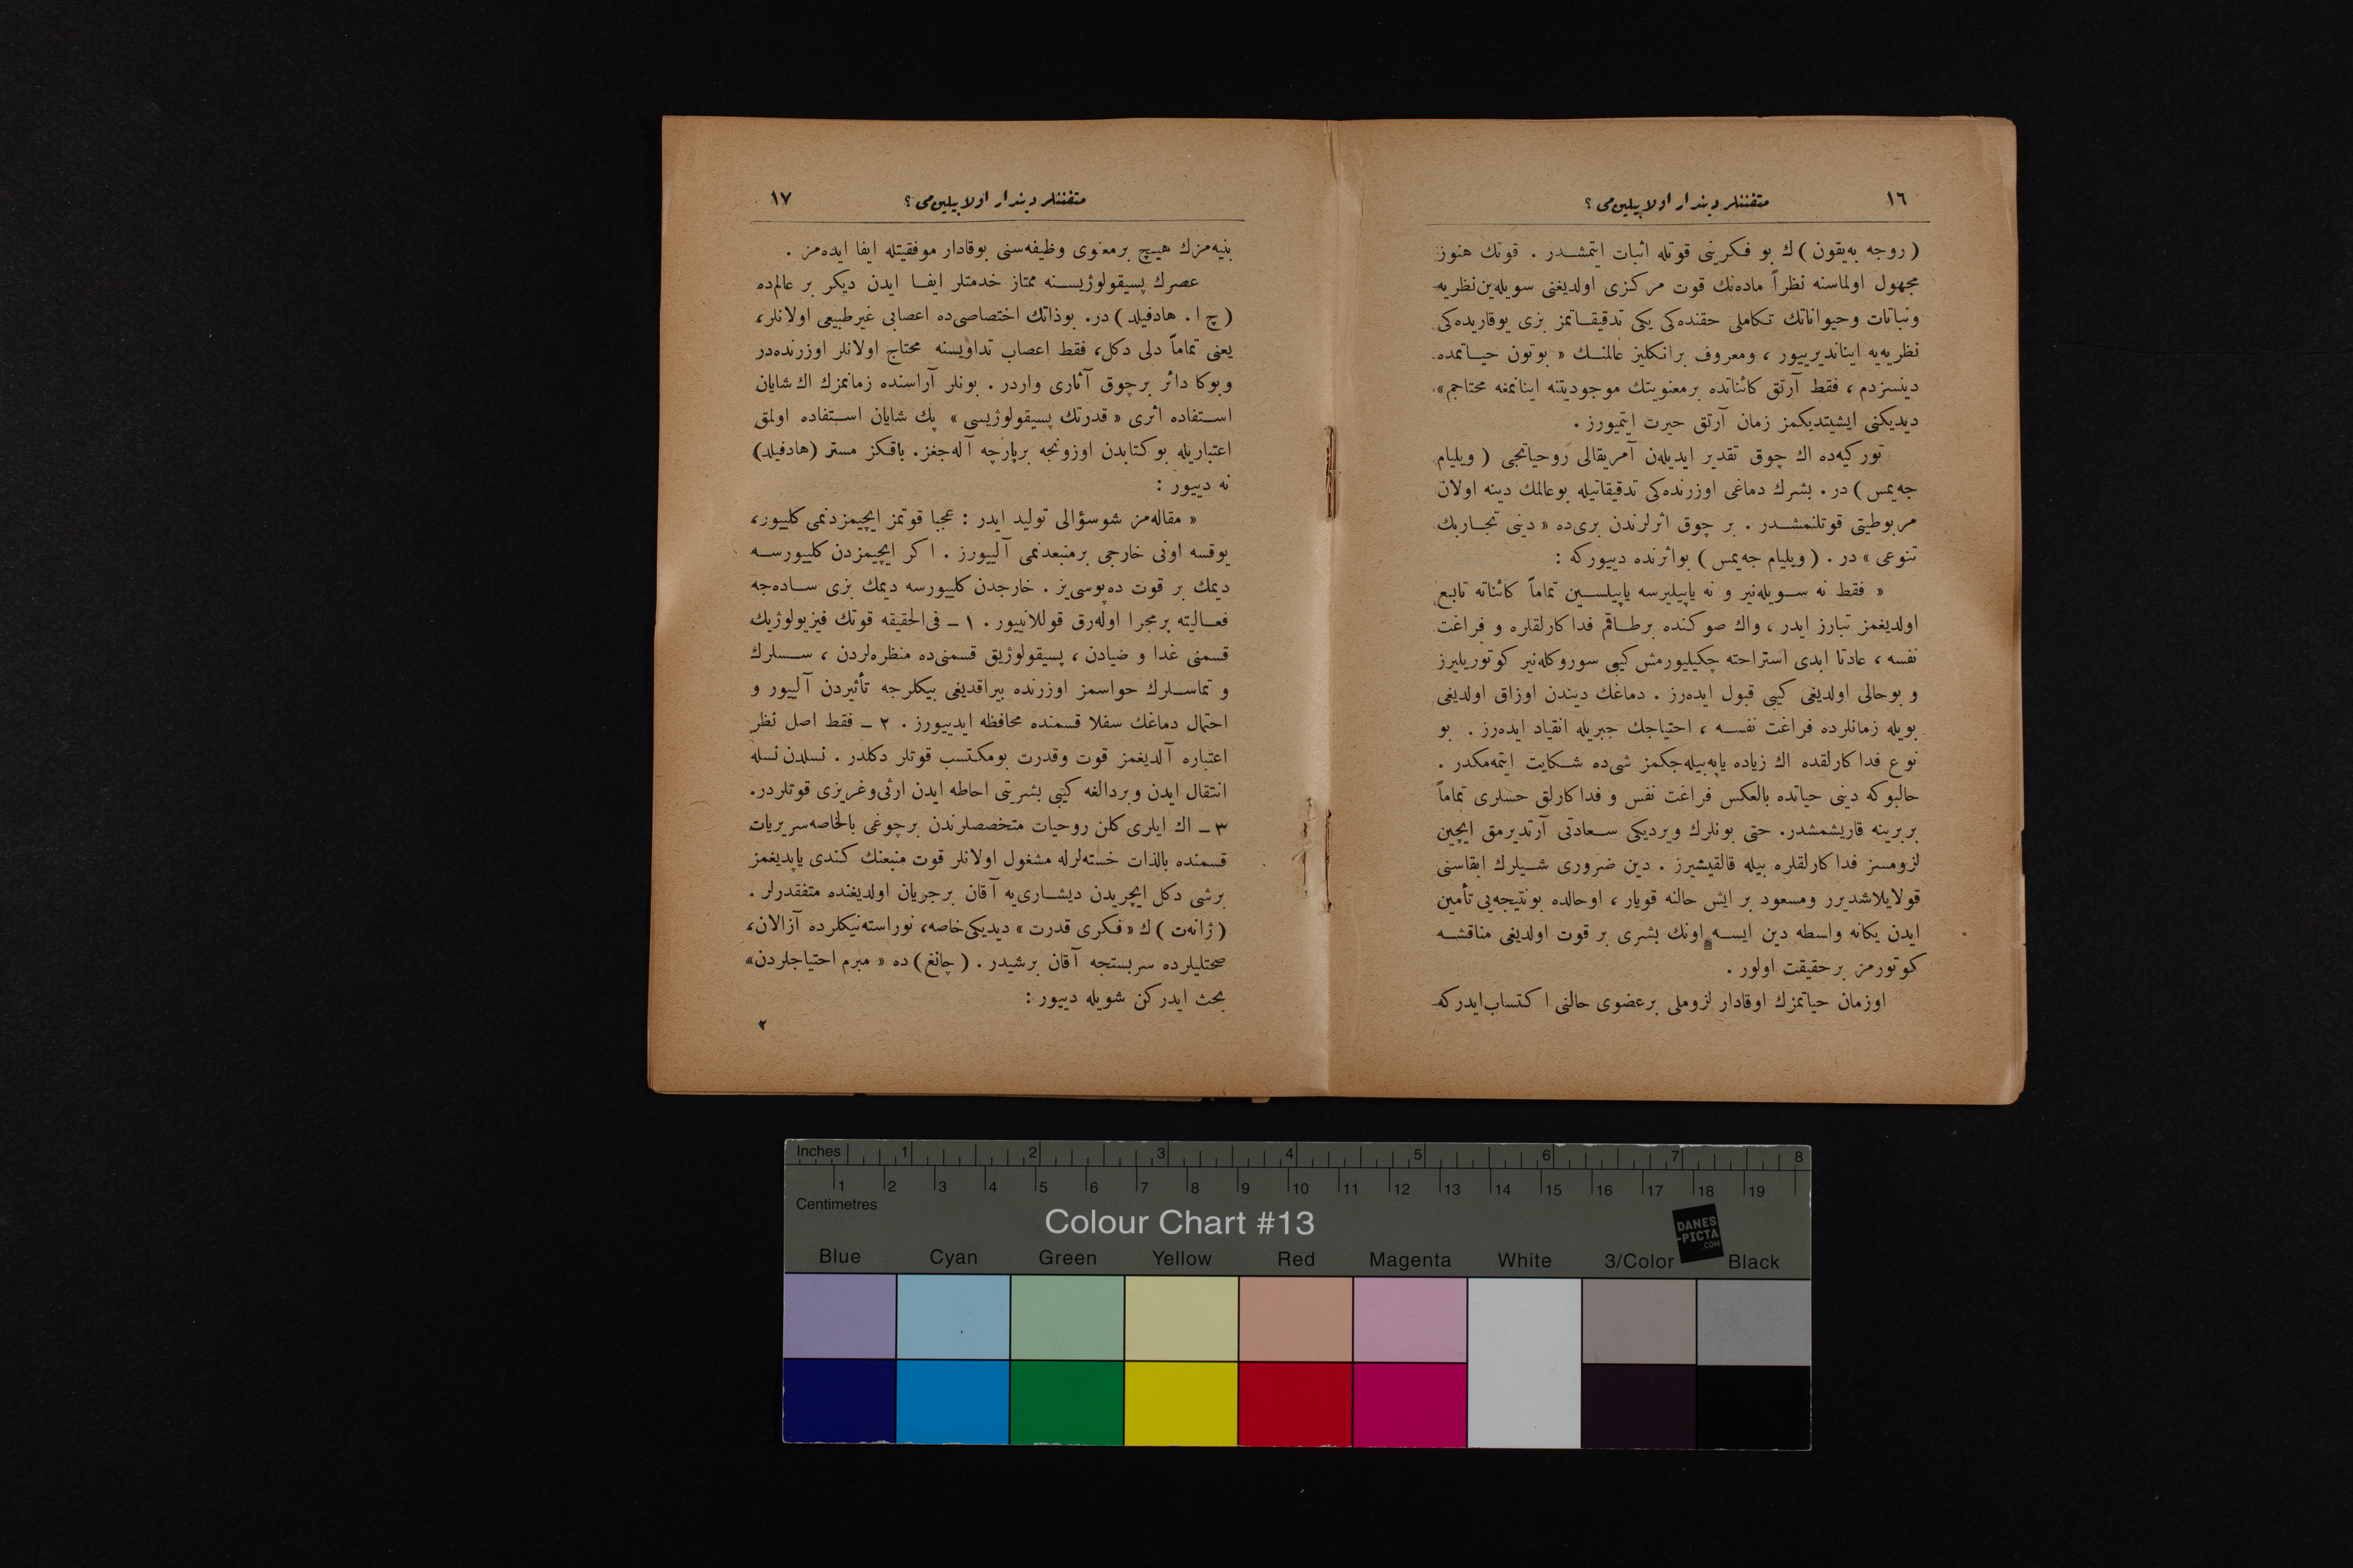 ١٦
متفننلر ديندار اولابيلين‌می ؟
( روجه به‌يقون ) ك بو فكرينی قوتله اثبات ايتمشدر . قوتك هنوز
مجهول اولماسنه نظراً ماده‌نك قوت مركزی اولديغنی سويله‌ين نظريه
ونباتات وحيواناتك تكاملی حقنده‌كی يكی تدقيقاتمز بزی يوقاريده‌كی
نظريه‌يه اينانديرييور ، ومعروف برانكليز عالمنك « بوتون حياتمده
دينسزدم ، فقط آرتق كائناتده برمعنويتك موجوديتنه اينانمغه محتاجم »
ديديكنی ايشيتديكمز زمان آرتق حيرت ايتميورز .
توركيه‌ده اك چوق تقدير ايديلن آمريقالی روحياتجی ( ويليام
جه‌يمس ) در . بشرك دماغی اوزرنده‌كی تدقيقاتيله بوعالمك دينه اولان
مربوطيتی قوتلنمشدر . بر چوق اثرلرندن بری‌ده « دينی تجاربك
تنوعی » در . ( ويليام جه‌يمس ) بواثرنده دييوركه :
« فقط نه سويله‌نير و نه ياپيليرسه ياپيلسين تماماً كائناته تابع
اولديغمز تبارز ايدر ، واك صوكنده برطاقم فداكارلقلره و فراغت
نفسه ، عادتا ابدی استراحته چكيليورمش كيبی سوروكله‌نير كوتوريليرز
و بوحالی اولديغی كيبی قبول ايده‌رز . دماغك ديندن اوزاق اولديغی
بويله زمانلرده فراغت نفسه ، احتياجك جبريله انقياد ايده‌رز . بو
نوع فداكارلقده اك زياده ياپه‌بيله‌جكمز شی‌ده شكايت ايتمه‌مكدر .
حالبوكه دينی حياتده بالعكس فراغت نفس و فداكارلق حسلری تماماً
بربرينه قاريشمشدر. حتی بونلرك ويرديكی سعادتی آرتديرمق ايچين
لزومسز فداكارلقلره بيله قالقيشيرز . دين ضروری شيلرك ابقاسنی
قولايلاشديرر ومسعود بر ايش حالنه قويار ، اوحالده بونتيجه‌يی تأمين
ايدن يكانه واسطه دين ايسه اونك بشری بر قوت اولديغی مناقشه
كوتورمز برحقيقت اولور .
اوزمان حياتمزك اوقادار لزوملی برعضوی حالنی اكتساب ايدركه
متفننلر ديندار اولابيلين‌می ؟
١٧
بنيه‌مزك هيچ برمعنوی وظيفه‌سنی بوقادار موفقيتله ايفا ايده‌مز .
عصرك پسيقولوژيسنه ممتاز خدمتلر ايفا ايدن ديكر بر عالم‌ده
( چ ا . هادفيلد ) در. بوذاتك اختصاصی‌ده اعصابی غيرطبيعی اولانلر،
يعنی تماماً دلی دكل، فقط اعصاب تداويسنه محتاج اولانلر اوزرنده‌در
وبوكا دائر برچوق آثاری واردر . بونلر آراسنده زمانمزك اك شايان
استفاده اثری « قدرتك پسيقولوژيسی » پك شايان استفاده اولمق
اعتباريله بوكتابدن اوزونجه برپارچه آله‌جغز. باقكز مستر (هادفيلد)
نه دييور :
« مقاله‌مز شوسؤالی توليد ايدر : عجبا قوتمز ايچيمزدنمی كلييور،
يوقسه اونی خارجی برمنبعدنمی آلييورز . اكر ايچيمزدن كلييورسه
ديمك بر قوت ده‌پوسی‌يز . خارجدن كلييورسه ديمك بزی ساده‌جه
فعاليته برمجرا اوله‌رق قوللانييور . ١ ــ فی‌الحقيقه قوتك فيزيولوژيك
قسمنی غدا و ضيادن ، پسيقولوژيق قسمنی‌ده منظره‌لردن ، سسلرك
و تماسلرك حواسمز اوزرنده بيراقديغی بيكلرجه تأثيردن آلييور و
احتمال دماغك سفلا قسمنده محافظه ايدييورز . ٢ ــ فقط اصل نظر
اعتباره آلديغمز قوت وقدرت بومكتسب قوتلر دكلدر . نسلدن نسله
انتقال ايدن وبردالغه كيبی بشريتی احاطه ايدن ارثی‌وغريزی قوتلردر.
٣ ــ اك ايلری كلن روحيات متخصصلرندن برچوغی بالخاصه سريريات
قسمنده بالذات خسته‌لرله مشغول اولانلر قوت منبعنك كندی ياپديغمز
برشی دكل ايچريدن ديشاری‌يه آقان برجريان اولديغنده متفقدرلر .
( ژانه‌ت ) ك « فكری قدرت » ديديكی خاصه، نوراسته‌نيكلرده آزالان،
صحتليلرده سربستجه آقان برشيدر . ( چانغ ) ده « مبرم احتياجلردن »
بحث ايدركن شويله دييور :
٢
Inches 1 2 3 4 5 6 7 8
1 2 3 4 5 6 7 8 9 10 11 12 13 14 15 16 17 18 19
Centimetres
Colour Chart #13
DANES
-PICTA
.COM
Blue Cyan Green Yellow Red Magenta White 3/Color Black